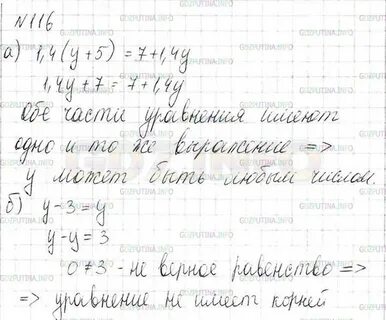 №116
а) 1,4(у+5)=7+1,4у
1,4у+7=7+1,4у
Обе части уравнения имеют
одно и то же выражение =>
у может быть любым числом.
б) у-3=у
у-у=3
0≠3 - не верное равенство =>
=> уравнение не имеет корней